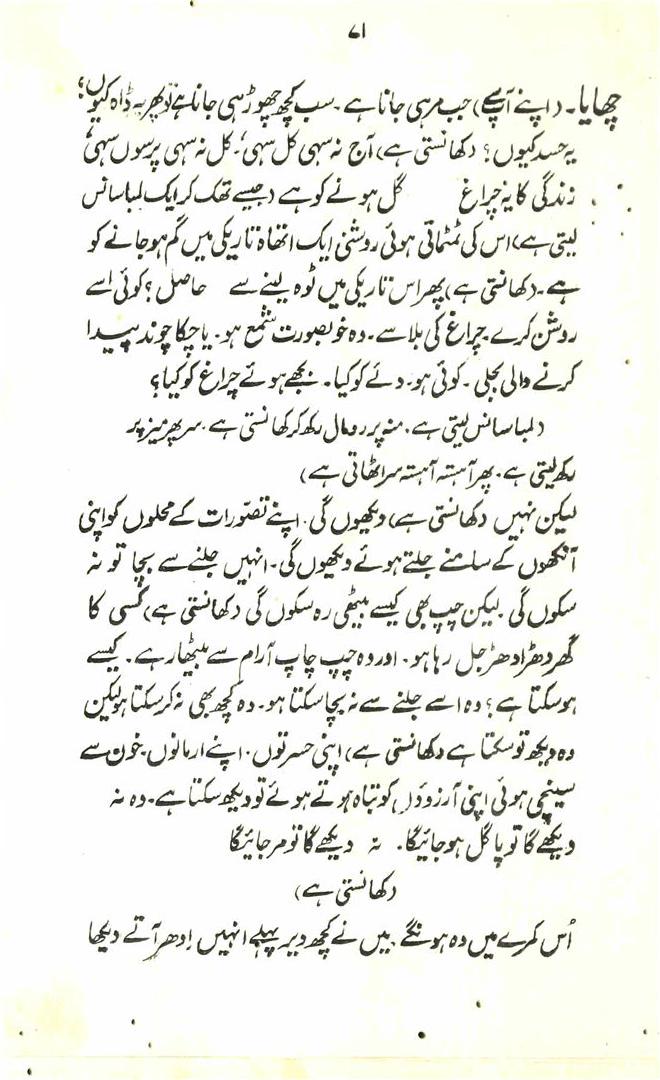 ۷۱
چھایا۔ (اپنے آپسے) جب مر ہی جانا ہے۔ سب کچھ چھوڑ ہی جانا ہے تو پھر یہ ڈاہ کیوں؟
یہ حسد کیوں؟ (کھانستی ہے) آج نہ سہی کل سہی، کل نہ سہی پرسوں سہی
زندگی کا یہ چراغ گل ہونے کو ہے (جیسے تھک کر ایک لمبا سانس
لیتی ہے) اس کی ٹمٹماتی ہوئی روشنی ایک اتھاہ تاریکی میں گم ہو جانے کو
ہے۔ (کھانستی ہے) پھر اس تاریکی میں ٹوہ لینے سے حاصل؟ کوئی اسے
روشن کرے۔ چراغ کی بلا سے۔ وہ خوبصورت شمع ہو۔ یا چکا چوند پیدا
کرنے والی بجلی۔ کوئی ہو۔ دئے کو کیا۔ بجھے ہوئے چراغ کو کیا؟
(لمبا سانس لیتی ہے۔ منہ پر رومال رکھ کر کھانستی ہے۔ سر پھر میز پر
رکھ لیتی ہے۔ پھر آہستہ آہستہ سر اٹھاتی ہے)
لیکن نہیں (کھانستی ہے) دیکھوں گی۔ اپنے تصوّرات کے محلوں کو اپنی
آنکھوں کے سامنے جلتے ہوئے دیکھوں گی۔ انہیں جلنے سے بچا تو نہ
سکوں گی۔ لیکن چپ بھی کیسے بیٹھی رہ سکوں گی (کھانستی ہے) کسی کا
گھر دھڑا دھڑ جل رہا ہو۔ اور وہ چپ چاپ آرام سے بیٹھا رہے۔ کیسے
ہو سکتا ہے؟ وہ اسے جلنے سے نہ بچا سکتا ہو۔ وہ کچھ بھی نہ کر سکتا ہو لیکن
وہ دیکھ تو سکتا ہے (کھانستی ہے) اپنی حسرتوں۔ اپنے ارمانوں۔ خون سے
سینچی ہوئی اپنی آرزوؤں کو تباہ ہوتے ہوئے تو دیکھ سکتا ہے۔ وہ نہ
دیکھے گا تو پاگل ہو جائیگا۔ نہ دیکھے گا تو مر جائیگا
(کھانستی ہے)
اُس کمرے میں وہ ہونگے۔ میں نے کچھ دیر پہلے انہیں اِدھر آتے دیکھا